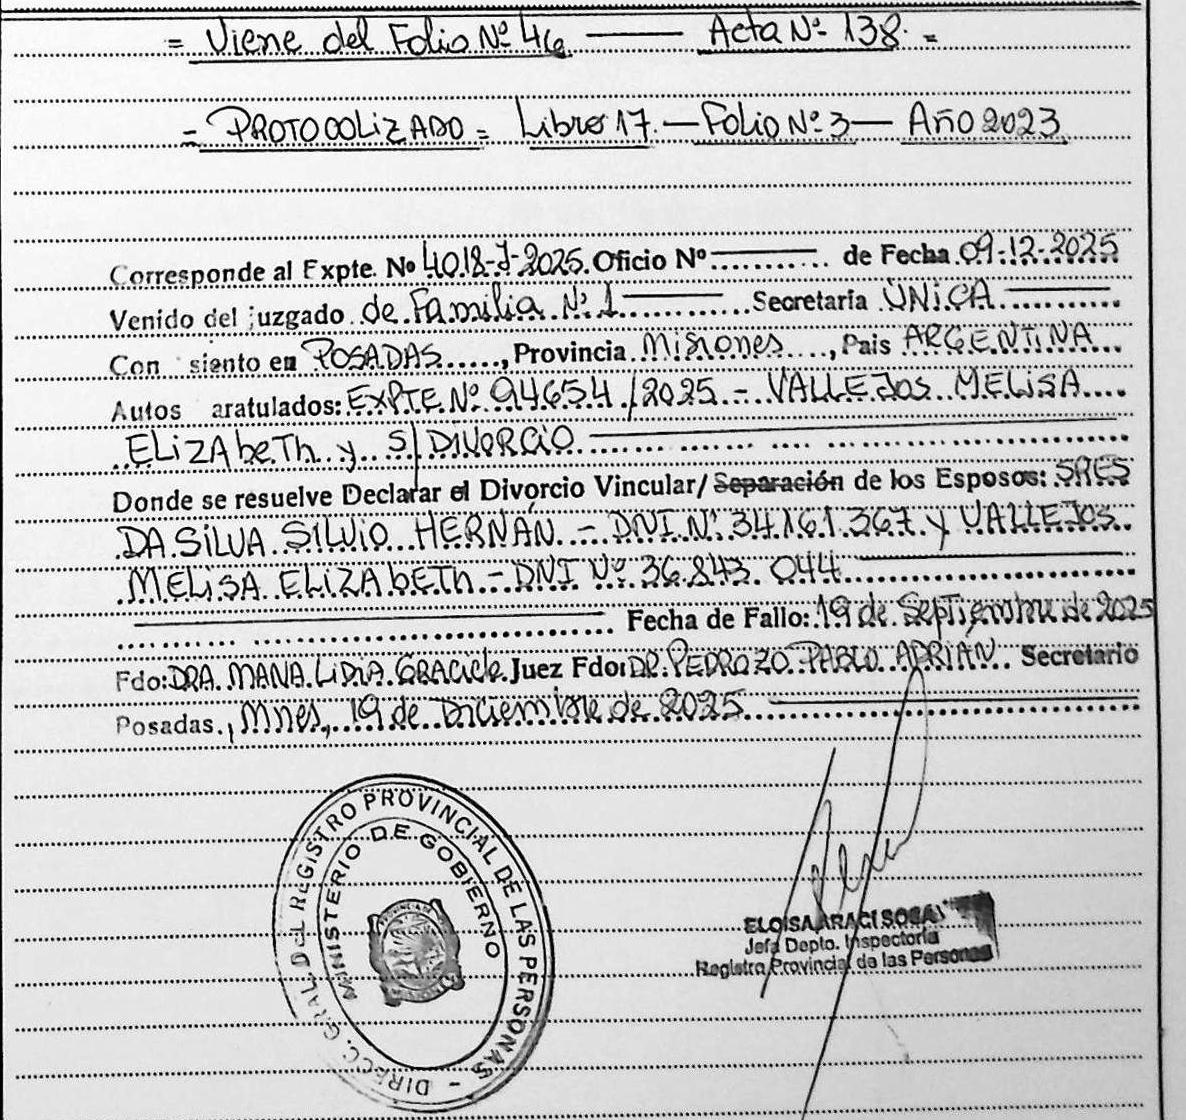 = Viene del Folio Nº 46 —— Acta Nº 138. =
= PROTOCOLIZADO = Libro 17. — Folio Nº 3 — Año 2023
Corresponde al Expte. Nº 4018-J-2025. Oficio Nº .......... de Fecha 09-12-2025
Venido del juzgado de Familia Nº 1 .......... Secretaría ÚNICA ..........
Con siento en POSADAS ....., Provincia Misiones ...., Pais ARGENTINA ...
Autos aratulados: EXPTE. Nº 94654/2025 - VALLEJOS MELISA ....
ELIZAbeTh y S/DIVORCIO. ..........
Donde se resuelve Declarar el Divorcio Vincular/ Separación de los Esposos: SRES
DA SILVA SILVIO HERNÁN - DNI Nº 34.161.367 y VALLEJOS
MELISA ELIZAbeTh - DNI Nº 36.843.044 ..........
.......... Fecha de Fallo: 19 de Septiembre de 2025
Fdo: DRA. MANA LIDIA GRACIELE Juez Fdo: DR. PEDROZO PABLO ADRIÁN. Secretario
Posadas, Mnes, 19 de Diciembre de 2025 ..........
DIRECC. GRAL. DEL REGISTRO PROVINCIAL DE LAS PERSONAS -
MINISTERIO DE GOBIERNO
ELOISA ARACI SOSA
Jefa Depto. Inspectoria
Registro Provincial de las Personas